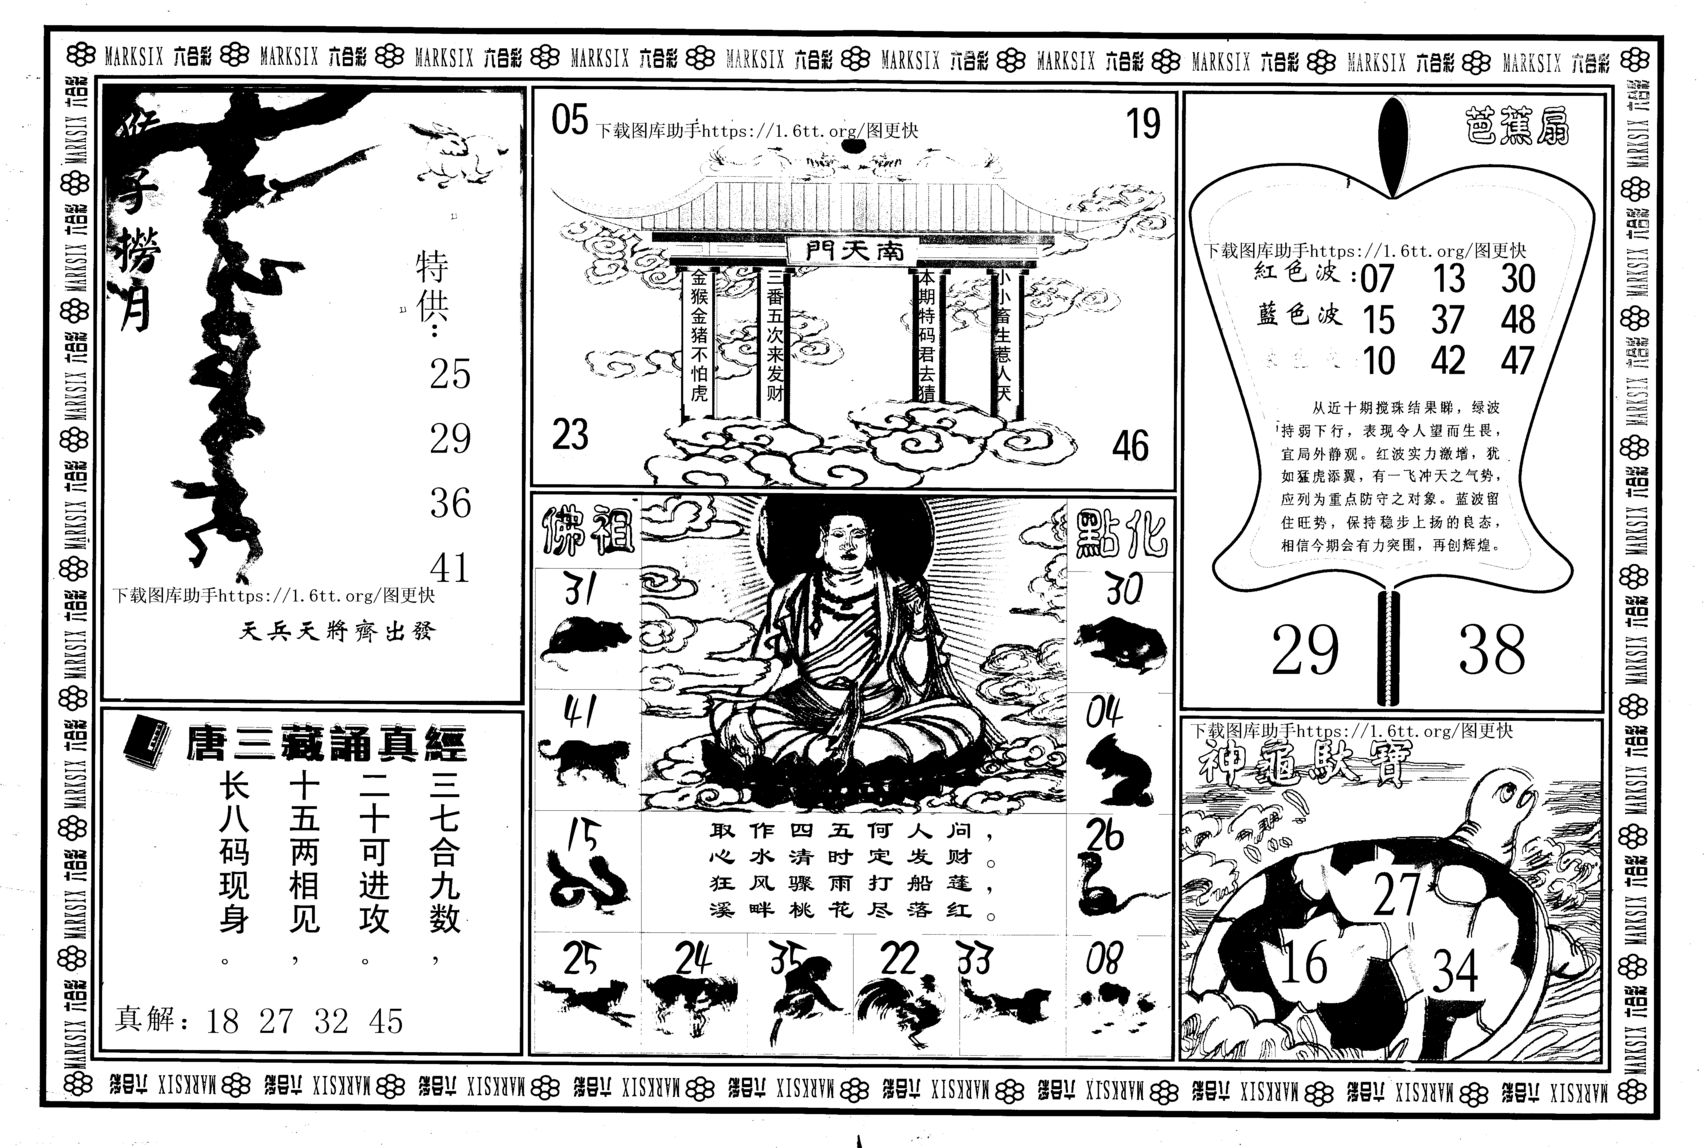 MARKSIX 六合彩 MARKSIX 六合彩 MARKSIX 六合彩 MARKSIX 六合彩 MARKSIX 六合彩 MARKSIX 六合彩 MARKSIX 六合彩 MARKSIX 六合彩 MARKSIX 六合彩 MARKSIX 六合彩
猴子撈月
特供：
25
29
36
41
下载图库助手https://1.6tt.org/图更快
天兵天將齊出發
05
下载图库助手https://1.6tt.org/图更快
19
南天門
金猴金猪不怕虎
三番五次来发财
本期特码君去猜
小小畜生惹人厌
23
46
芭蕉扇
下载图库助手https://1.6tt.org/图更快
紅色波：07 13 30
藍色波 15 37 48
10 42 47
从近十期搅珠结果睇，绿波
持弱下行，表现令人望而生畏，
宜局外静观。红波实力激增，犹
如猛虎添翼，有一飞冲天之气势，
应列为重点防守之对象。蓝波留
住旺势，保持稳步上扬的良态，
相信今期会有力突围，再创辉煌。
29 38
佛祖
點化
31
30
41
04
15
26
取作四五何人问，
心水清时定发财。
狂风骤雨打船蓬，
溪畔桃花尽落红。
25 24 35 22 33 08
唐三藏誦真經
三七合九数，
二十可进攻。
十五两相见，
长八码现身。
真解：18 27 32 45
下载图库助手https://1.6tt.org/图更快
神龜馱寶
27
16
34
MARKSIX 六合彩 MARKSIX 六合彩 MARKSIX 六合彩 MARKSIX 六合彩 MARKSIX 六合彩 MARKSIX 六合彩 MARKSIX 六合彩 MARKSIX 六合彩 MARKSIX 六合彩 MARKSIX 六合彩